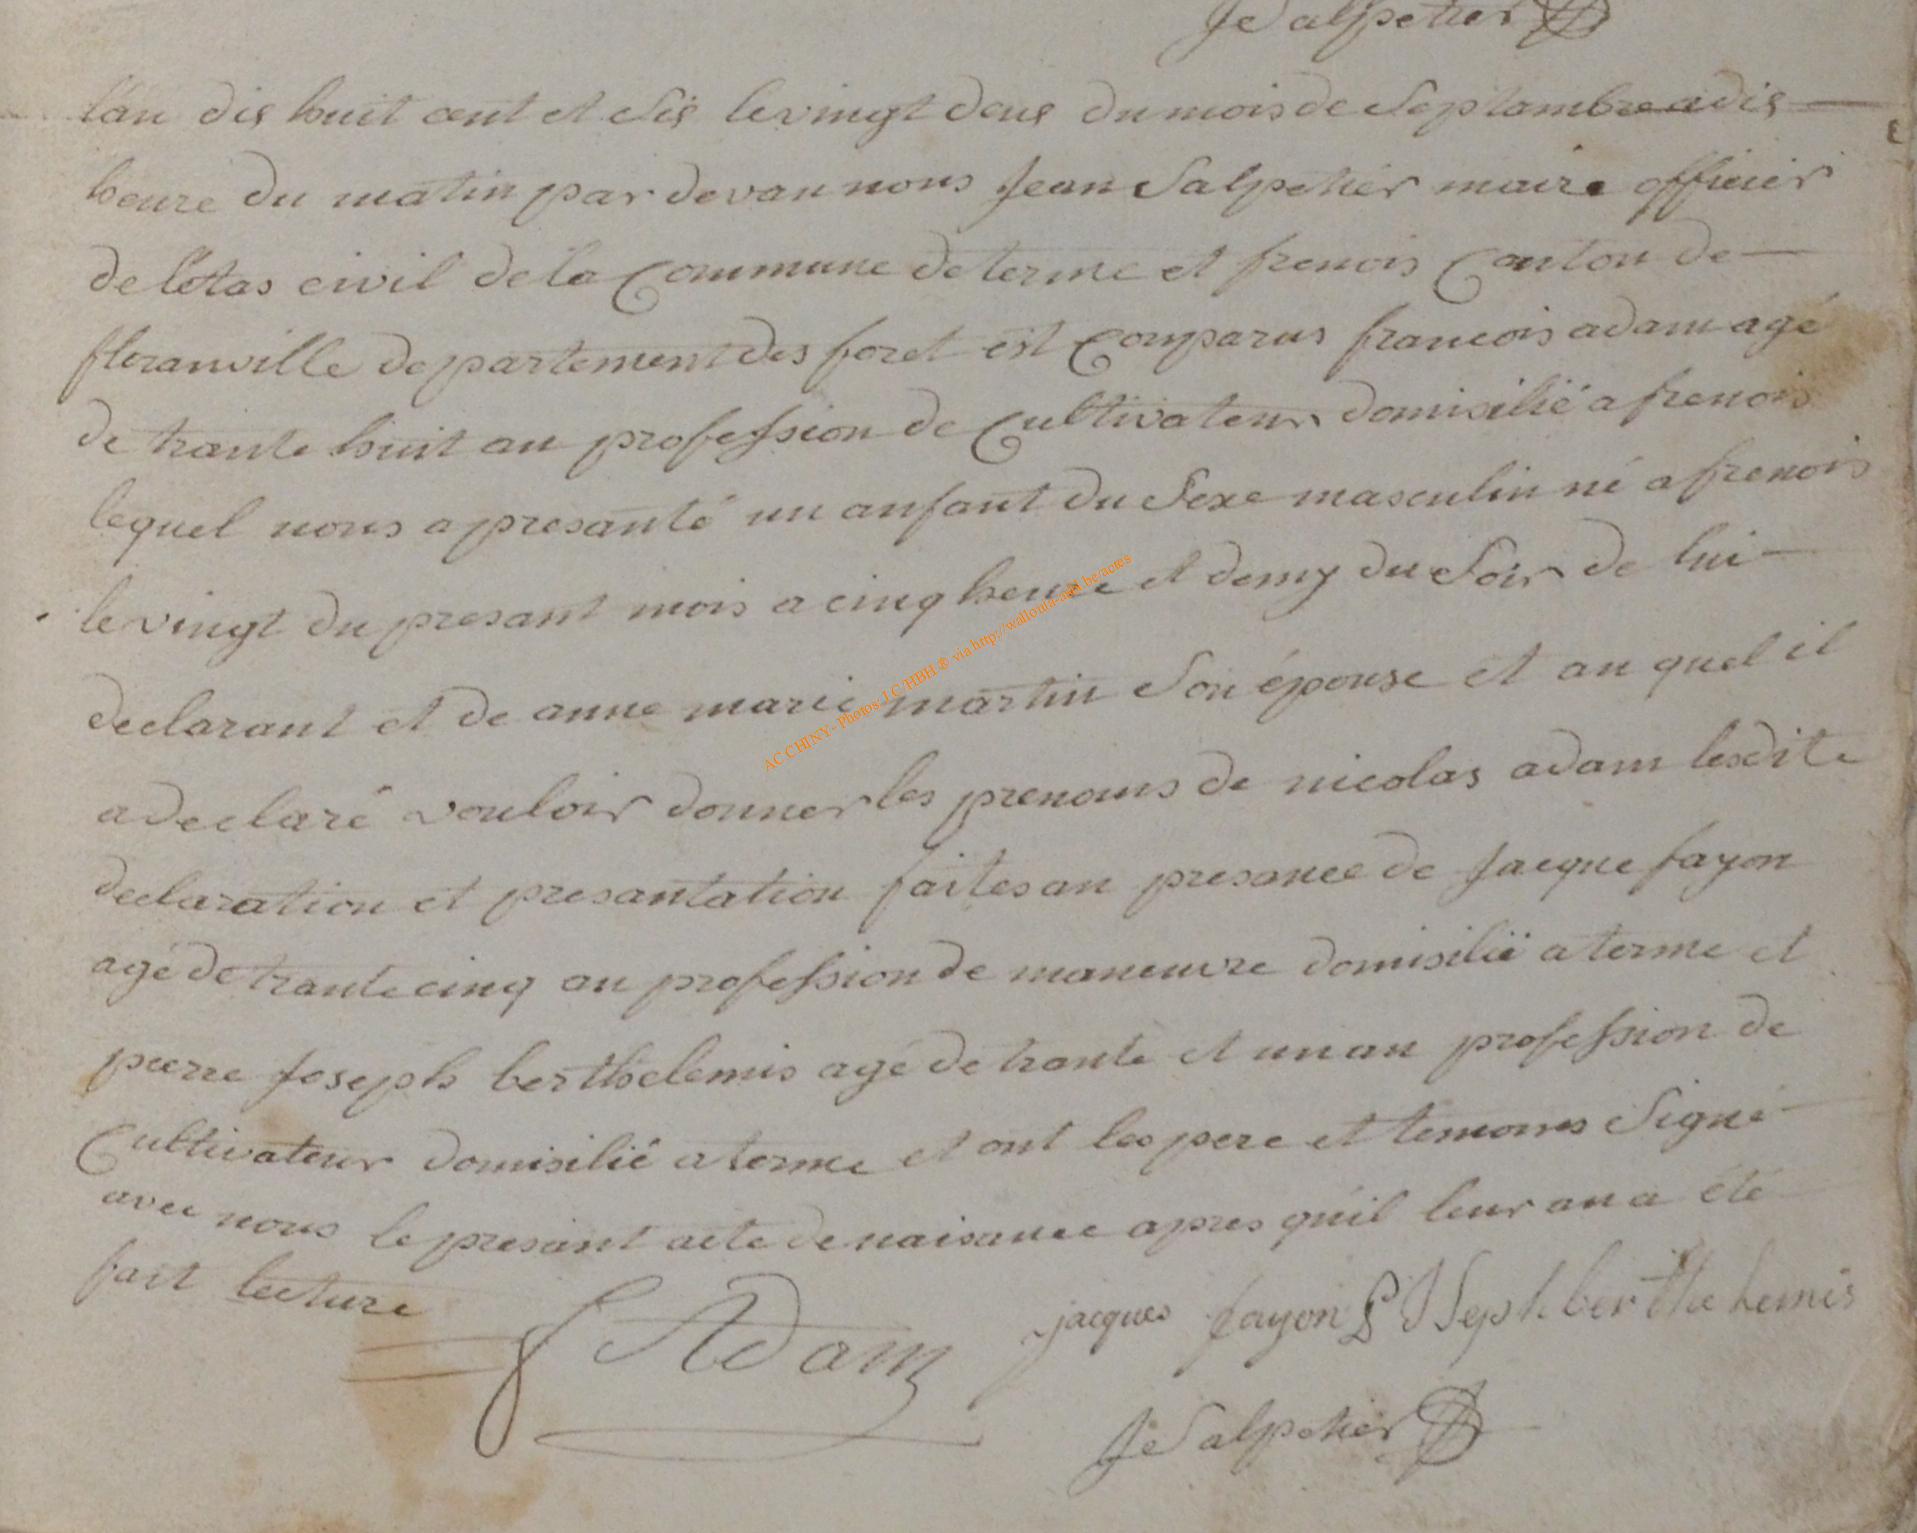 Je Salpetier
l'an dis huit cent et sis le vingt deus du mois de Septambre a dis
heure du matin par devan nous Jean Salpetier maire officier
de l'Etas civil de la Commune de terme et frenois Canton de
floranville departement des foret est Comparus francois adam agé
de trante huit an profession de Cultivateur domisilié a frenois
lequel nous a presanté un anfant du Sexe masculin né a frenois
le vingt du presant mois a cinq heure et demy du Soir de lui
declarant et de anne marie martin Son épouse et au quel il
a declaré vouloir donner les prenoms de nicolas adam lesdite
declaration et presantation faites an presance de Jacque fayon
agé de trante cinq an profession de maneuvre domisilié a terme et
pierre Joseph berthelemis agé de trante et un an profession de
Cultivateur domisilié a terme et ont les pere et temoins Signé
avec nous le presant acte de naisance apres qu'il leur an a été
fait lecture
f Adam
jacques fayon P JSeph berthelemis
Je Salpetier
AC CHINY - Photos J.C HBH ® via http://wallonia-asbl.be/actes